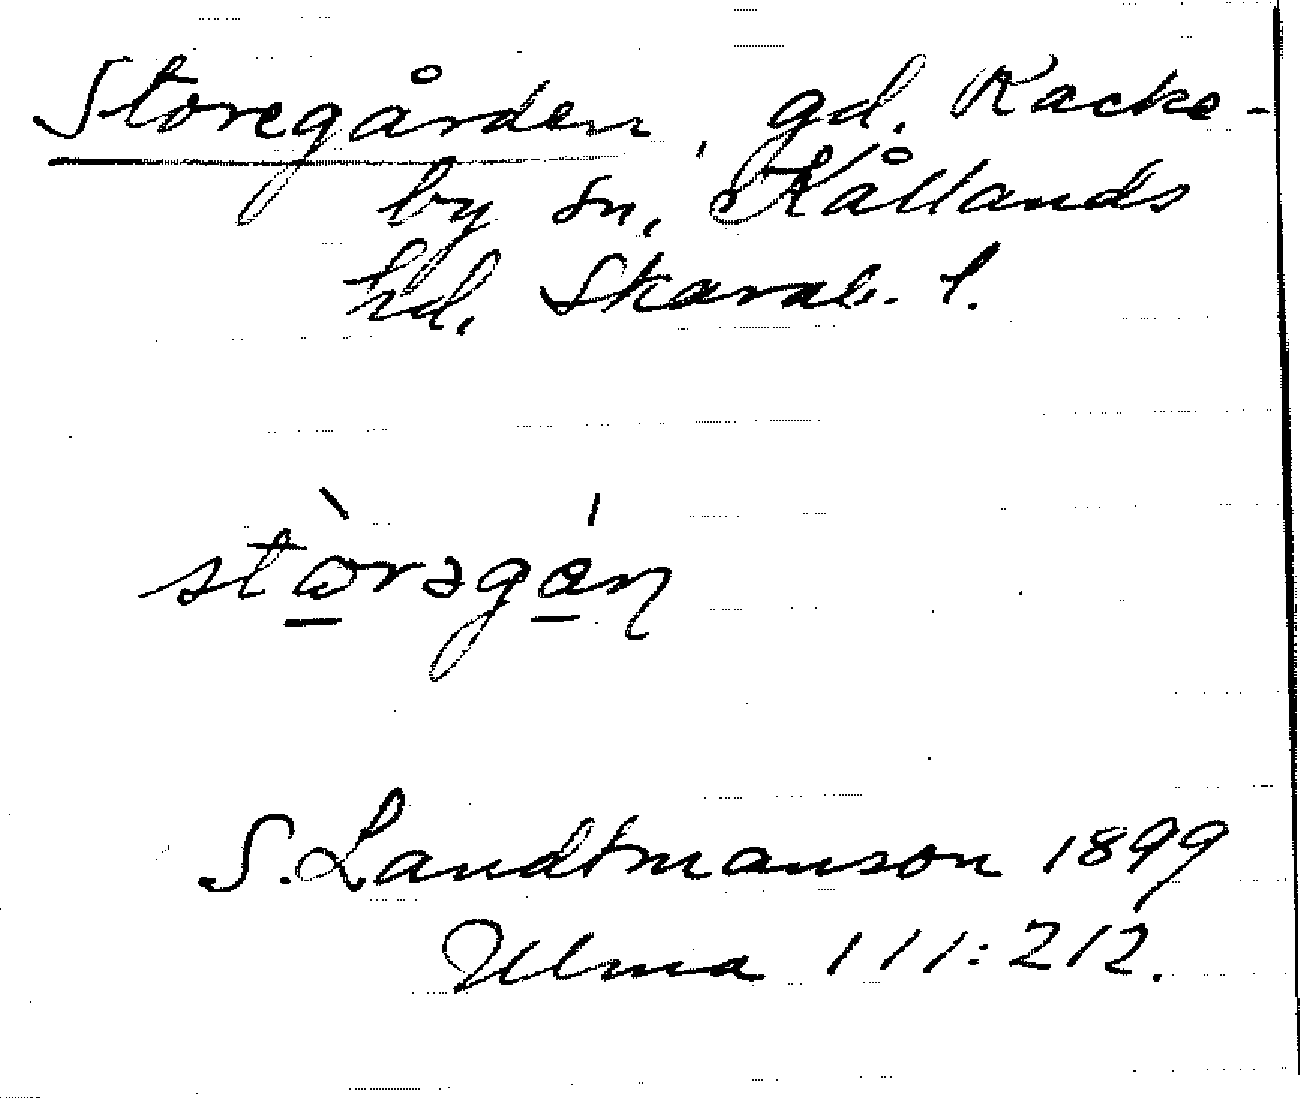 Storegården, gd. Kacke-
by sn, Kållands
hd. Skarab. l.
stòrəgán
S. Landtmanson 1899
Ulma 111:212.